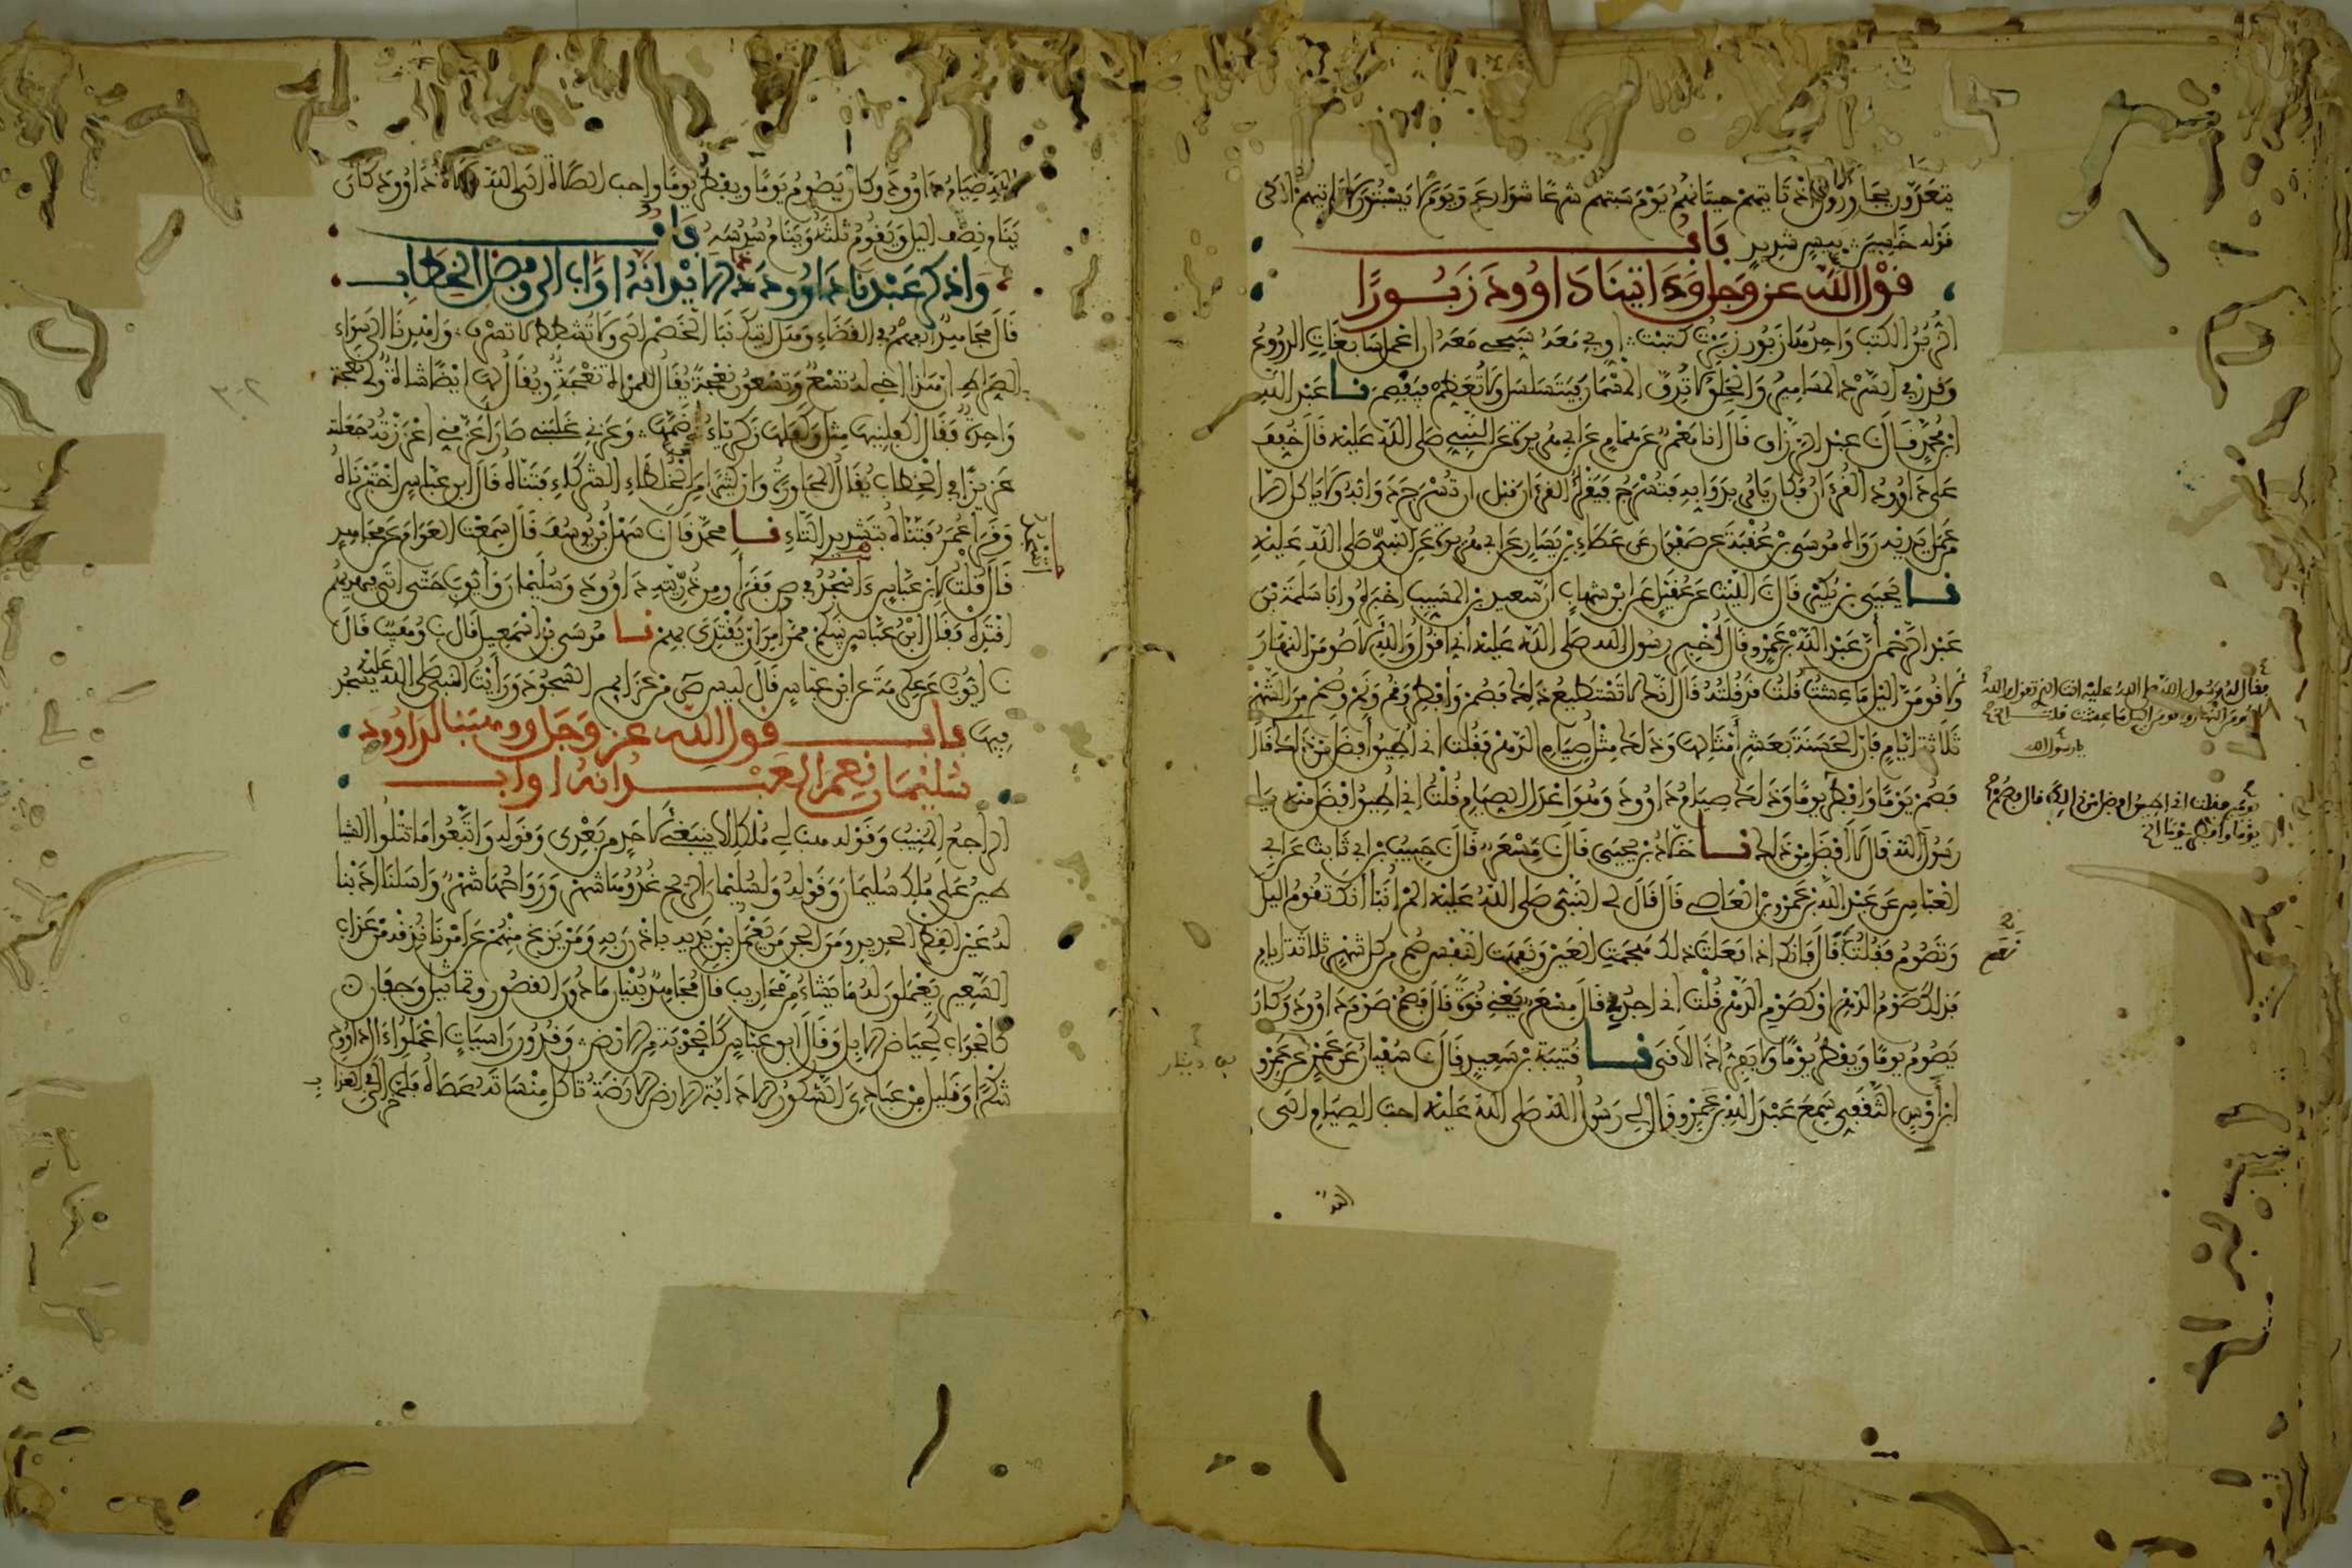 يتعدون يجاوزون إذ تاتيهم حيتانهم يوم سبتهم شرعا شوارع ويوم لا يسبتون لا تاتيهم إلى
قوله خاسين بيس شديد باب
قول الله عز وجل وءاتينا داوود زبورا
الزبر الكتب واحدها زبور زبرت كتبت أوبي معه سبحي معه أن اعمل سابغات الدروع
وقدر في السرد المسامير والحلق لا تدق المسمار فيتسلسل ولا تعظم فيفصم نا عبد الله
ابن محمد قال نا عبد الرزاق قال انا معمر عن همام عن ابي هريرة عن النبي صلى الله عليه قال خفف
على داوود القرءان فكان يامر بدوابه فتسرج فيقرأ القرءان قبل ان تسرج دوابه ولا ياكل الا
من عمل يديه رواه موسى بن عقبة عن صفوان عن عطاء بن يسار عن ابي هريرة عن النبي صلى الله عليه
نا يحيى بن بكير قال نا الليث عن عقيل عن ابن شهاب ان سعيد بن المسيب اخبره وابا سلمة بن
عبد الرحمن أن عبد الله بن عمرو قال أخبر رسول الله صلى الله عليه اني اقول والله لاصومن النهار
ولاقومن الليل ما عشت قلت قد قلته قال إنك لا تستطيع ذلك فصم وأفطر وقم ونم وصم من الشهر
ثلاثة أيام فإن الحسنة بعشر أمثالها وذلك مثل صيام الدهر فقلت اني أطيق أفضل من ذلك قال
فصم يوما وافطر يوما وذلك صيام داوود وهو اعدل الصيام قلت اني اطيق افضل منه يا
رسول الله قال لا افضل من ذلك نا خلاد بن يحيى قال نا مسعر قال نا حبيب بن ابي ثابت عن ابي
العباس عن عبد الله بن عمرو بن العاصي قال قال لي النبي صلى الله عليه الم أنبأ أنك تقوم الليل
وتصوم فقلت قال فانك اذا فعلت ذلك هجمت العين ونفهت النفس صم من كل شهر ثلاثة ايام
فذلك صوم الدهر او كصوم الدهر قلت اني اجد بي قال مسعر يعني قوة قال فصم صوم داوود وكان
يصوم يوما ويفطر يوما ولا يفر اذا لاقى نا قتيبة بن سعيد قال نا سفيان عن عمرو عن عمرو
ابن أوس الثقفي سمع عبد الله بن عمرو قال لي رسول الله صلى الله عليه احب الصيام الى
فقال له رسول الله صلى الله عليه انت الذي تقول والله
لاصومن النهار ولاقومن الليل ما عشت قلت
يا رسول الله
فقلت اني اطيق افضل من ذلك قال فصم
يوما وافطر يومين
نعم
بن دينار
الله صيام داوود وكان يصوم يوما ويفطر يوما واحب الصلاة الى الله صلاة داوود كان
ينام نصف الليل ويقوم ثلثه وينام سدسه باب
واذكر عبدنا داوود ذا الايد انه اواب الى وفصل الخطاب
قال مجاهد الفهم في القضاء وهل اتيك نبأ الخصم الى ولا تشطط لا تسرف واهدنا الى سواء
الصراط ان هذا اخي له تسع وتسعون نعجة يقال للمراة نعجة ويقال لها ايضا شاة ولي نعجة
واحدة فقال اكفلنيها مثل وكفلها زكرياء ضمها وعزني غلبني صار أعز مني اعززته جعلته
عزيزا في الخطاب يقال المحاورة وان كثيرا من الخلطاء الشركاء فتناه قال ابن عباس اختبرناه
وقرا عمر فتناه بتشديد التاء نا محمد قال نا سهل بن يوسف قال سمعت العوام عن مجاهد
قال قلت لابن عباس ءاسجد في ص فقرأ ومن ذريته داوود وسليمان وأيوب حتى اتى فبهديهم
اقتده فقال ابن عباس نبيكم ممن امر ان يقتدي بهم نا موسى بن اسمعيل قال نا وهيب قال
نا ايوب عن عكرمة عن ابن عباس قال ليس ص من عزايم السجود ورأيت النبي صلى الله عليه يسجد
فيها باب قول الله عز وجل ووهبنا لداوود
سليمان نعم العبد انه اواب
الراجع المنيب وقوله هب لي ملكا لا ينبغي لاحد من بعدي وقوله واتبعوا ما تتلوا الشيا
طين على ملك سليمان وقوله ولسليمان الريح غدوها شهر ورواحها شهر واسلنا اذبنا
له عين القطر الحديد ومن الجن من يعمل بين يديه باذن ربه ومن يزغ منهم عن امرنا نذقه من عذاب
السعير يعملون له ما يشاء من محاريب قال مجاهد بنيان ما دون القصور وتماثيل وجفان
كالجواب كحياض الابل وقال ابن عباس كالجوبة من الارض وقدور راسيات اعملوا ءال داوود
شكرا وقليل من عبادي الشكور الا دابة الارض الارضة تاكل منسأته عصاه فلما خر الى في العذا